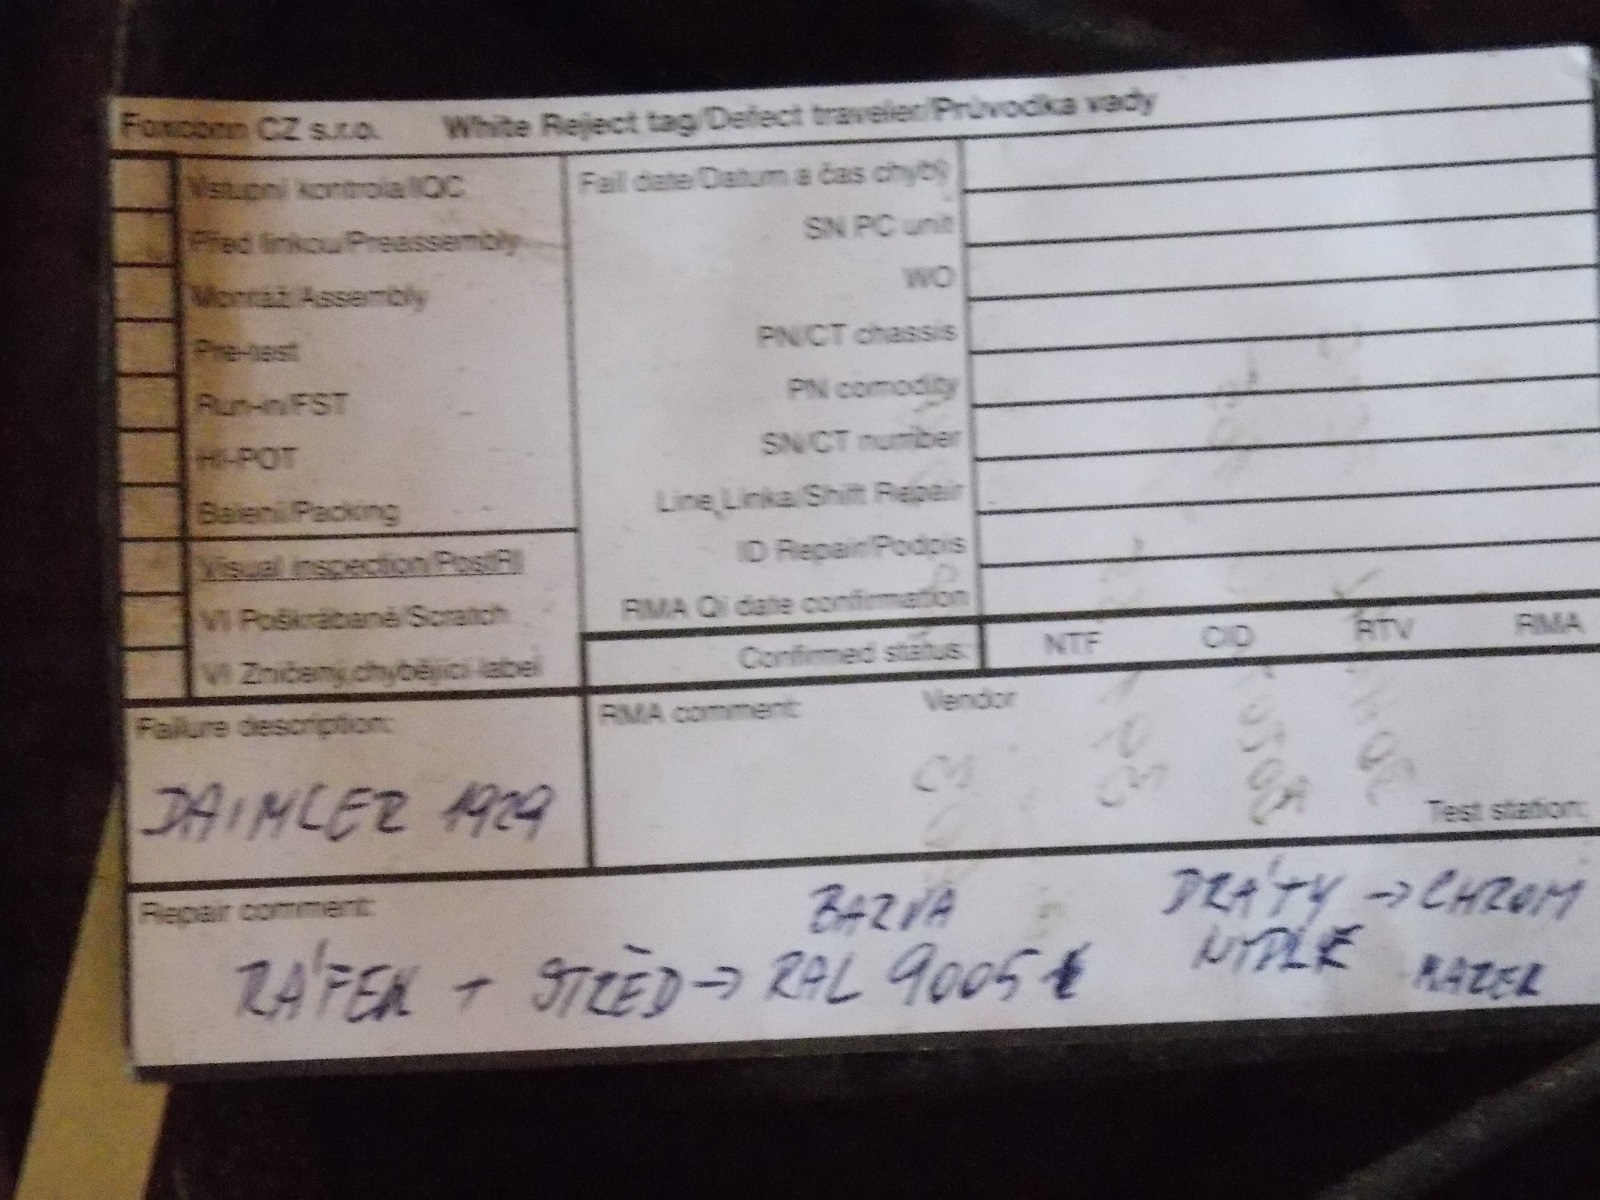 Foxconn CZ s.r.o. White Reject tag/Defect traveler/Průvodka vady
Vstupní kontrola/IQC
Před linkou/Preassembly
Montáž/Assembly
Pre-test
Run-in/FST
HI-POT
Balení/Packing
Visual inspection/PostRI
VI Poškrábané/Scratch
VI Zničený,chybějící label
Fail date/Datum a čas chyby
SN PC unit
WO
PN/CT chassis
PN comodity
SN/CT number
Line,Linka/Shift Repair
ID Repair/Podpis
RMA Qi date confirmation
Confirmed status: NTF CID RTV RMA
Failure description:
DAIMLER 1929
RMA comment: Vendor
Test station:
Repair comment:
BARVA
RÁFEK + STŘED → RAL 9005
DRÁTY → CHROM
NYPLE